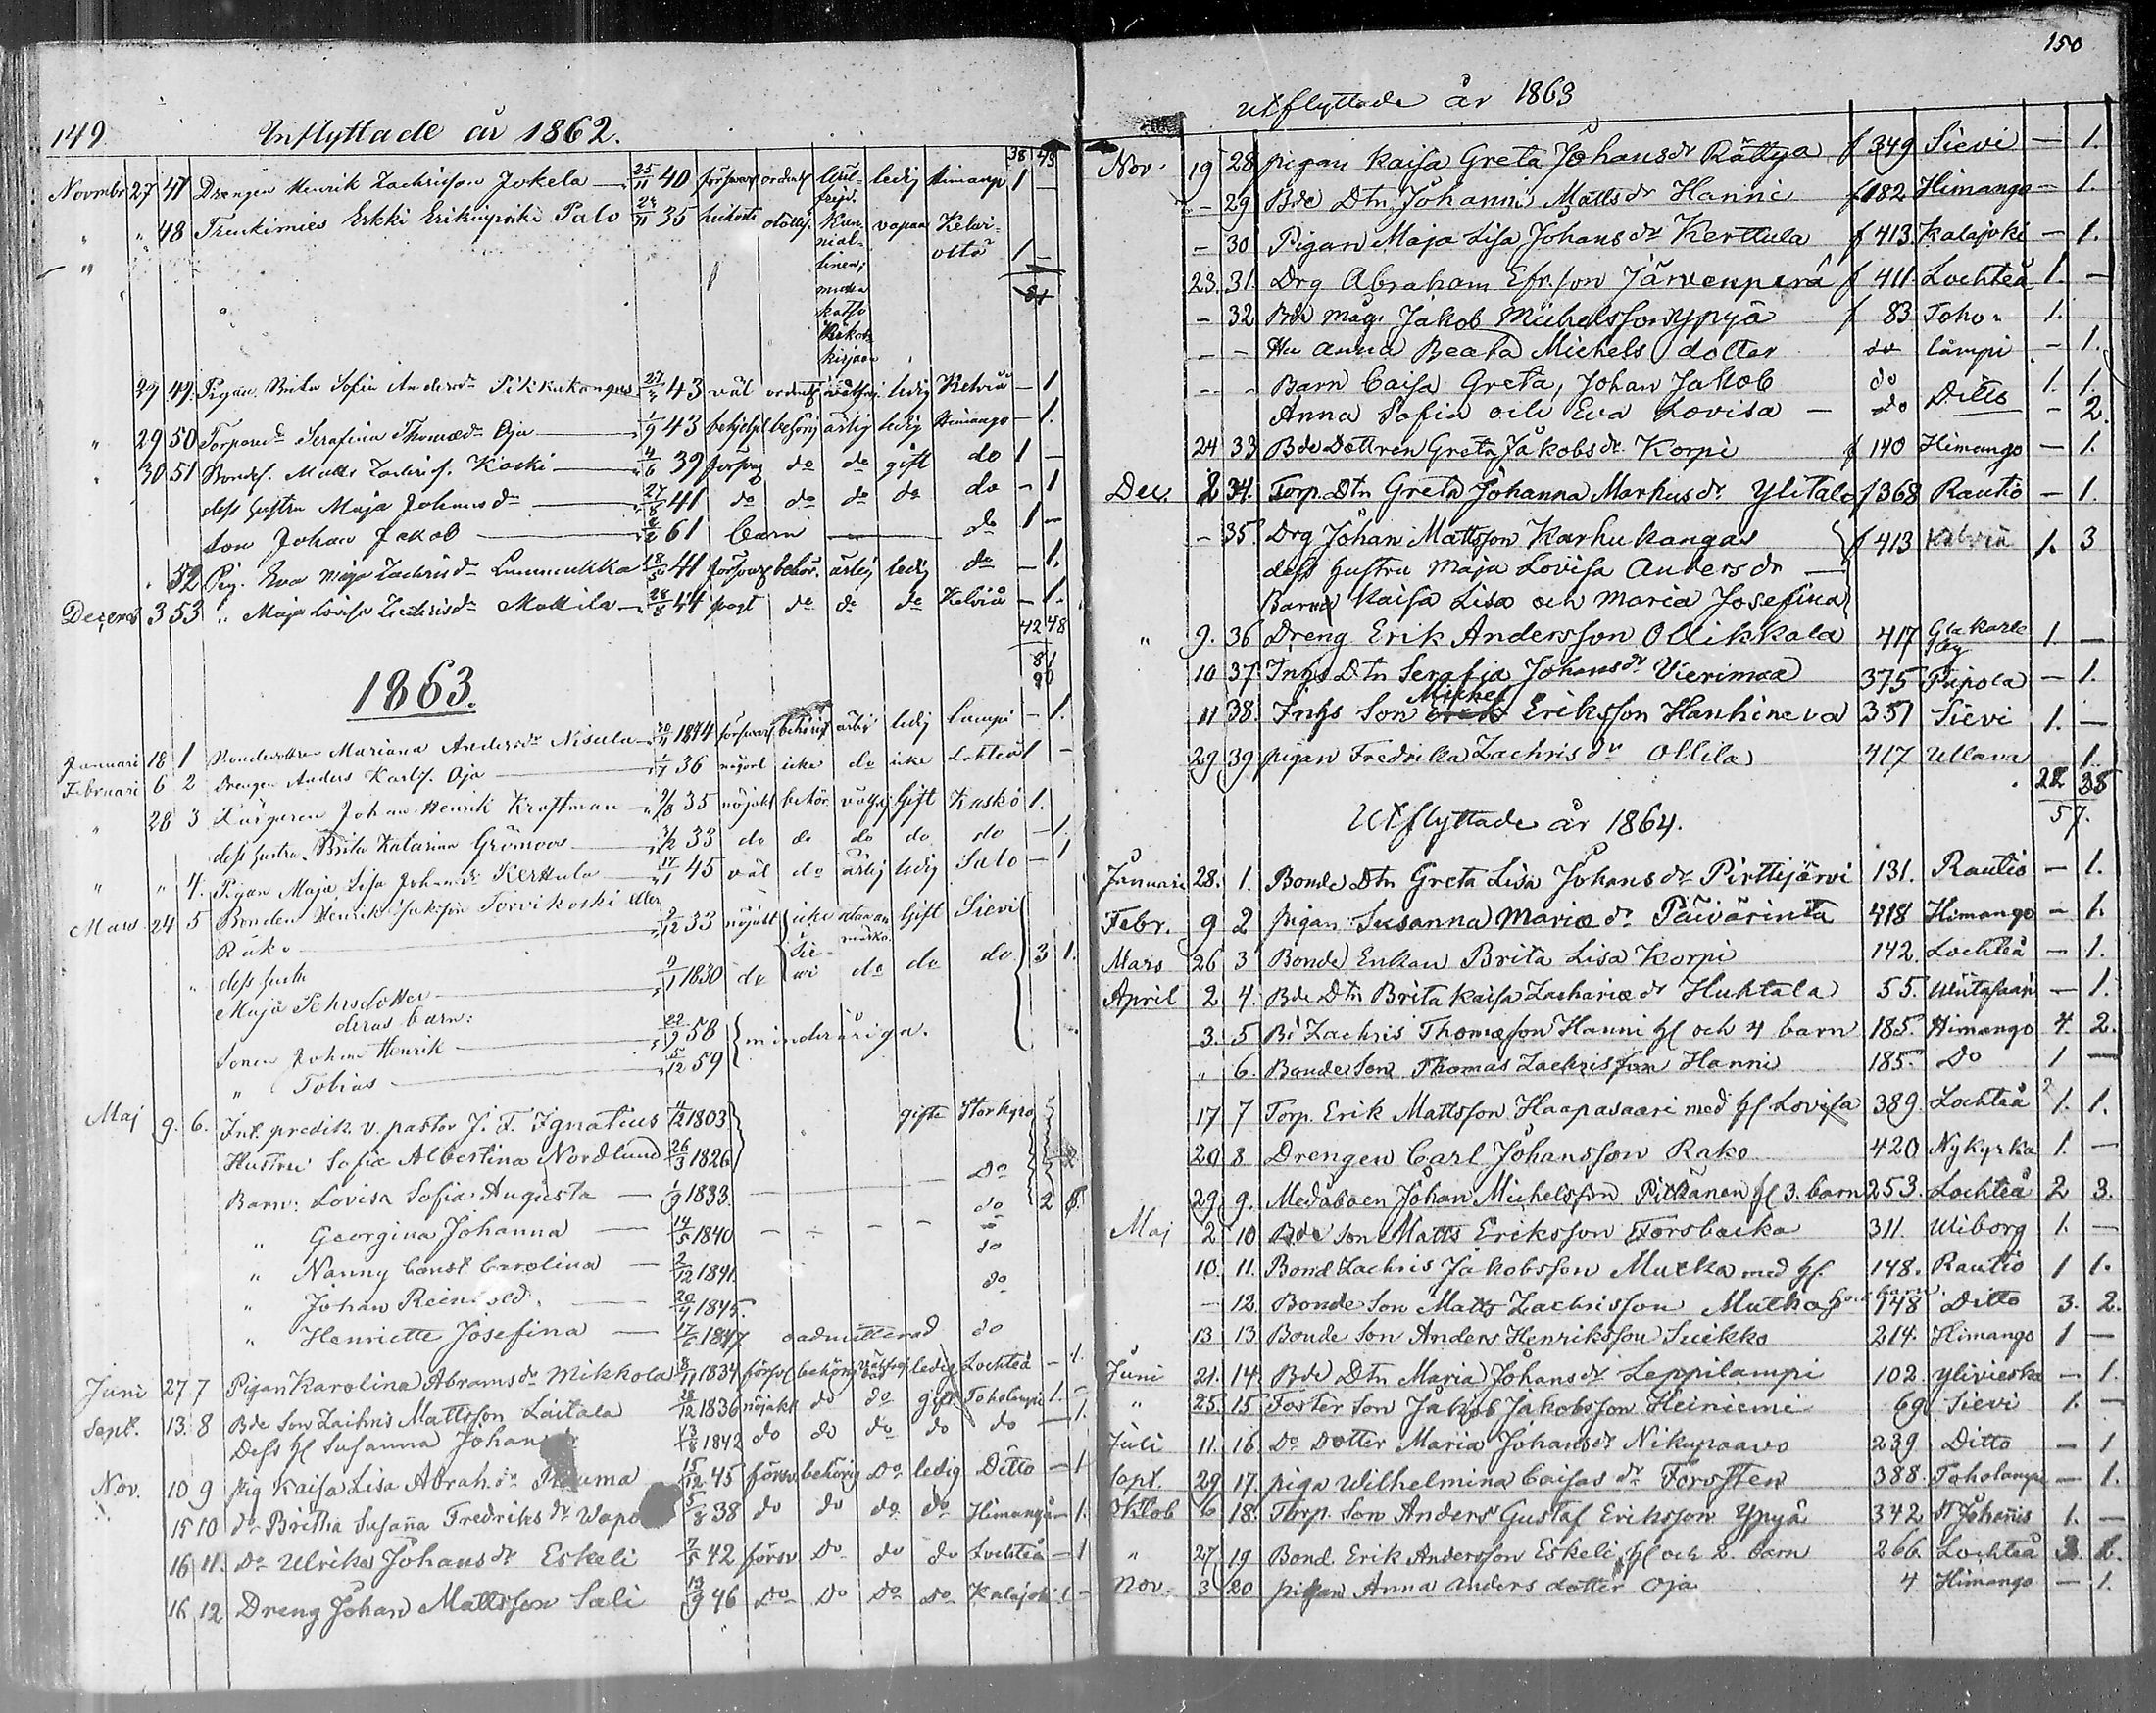 149 Inflyttade år 1862.
38 43
Novmbr 27 47 Drengen Henrik Zachrisson Jokela 25/11 40 försvarl ordentl wäl- ledig Himango 1 —
frejd.
" " 48 Erkki Palo 35 vapaa Kelwi-
1 —
81
29 49. Pigan Brita Sofia Andersdr Pikkukangas 43 väl ordentl wälfrej. ledig Kelviå — 1
" 29 50 Torparedr Serafina Thomædr Oja 1/9 43 behjelpl behörig ärlig ledig Himango — 1.
" 30 51 Bondes. Matts Zachriss. Koski 4/6 39 do do gift do 1 —
dess hustru Maja Johansdr 27/8 41 do do do do do — 1
son Johan Jakob 61 barn do 1 —
" 52 Pig. Eva Maja Zachrisdr 18/5 41 behör. ärlig ledig do — 1.
Decemb 3 53 " Maja Lovisa Zachrisdr Mattila 28/8 44 do do do Kelviå — 1.
42 48
1863.
Januari 18 1 Bondedottren Mariana Andersdr Nisula 30/11 1844 försvarl behörig ärlig ledig Lampi — 1.
Februari 6 2 Drengen Anders Karlss. Oja 36 icke do icke Lochteå 1 —
" 28 3 Johan Henrik Kraftman 9/8 35 nöjakt behör. välfrej Gift Kaskö 1.
dess hustru Brita Katarina Grönroos 1/12 33 do do do do do — 1.
" " 4. Pigan Maja Lisa Johansdr Kerttula 17/1 45 väl do ärlig ledig Salo — 1
Mars 24 5 Bonden Henrik Jakosson Torvikoski eller 2/12 33 nöjakt icke Gift Sievi
Rako
dess hustr 9/1 1830 do do do do 3 1.
Maja Pehrsdotter
deras barn:
Sonen Johan Henrik 22/9 58 minderåriga.
" Tobias 15/12 59
Maj 9. 6. Int. predik. v. pastor J. F. Ignatius 4/12 1803 gifta Storkyro
Hustru Sofia Albertina Nordlund 26/3 1826 Do
Barn: Lovisa Sofia Augusta — 1/9 1833. do 2
" Georgina Johanna — 14/5 1840 do
" Nanny Const. Carolina — 2/12 1841. do
" Johan Reinhold. — 20/4 1845. do
" Henriette Josefina — 17/6 1847 oadmitterad do
Juni 27 7 Pigan Karolina Abramsdr Mikkola 8/11 1834 försvl behörig välfrejdad ledig Lochteå — 1.
Sept. 13. 8 Bde Son Zachris Mattsson Laitala 28/12 1836 nöjakt do do gift Toholampi 1. —
Dess hl Susanna Johansdr 13/8 1842 do do do do do — 1.
Nov. 10 9 Pig Kaisa Lisa Abrah.dr 15/12 45 försv. behörig Do ledig Ditto — 1
15 10 dr Britha Susaña Fredriksdr 5/8 38 do do do do Himango — 1.
16 11. Do Ulrika Johansdr Eskeli 7/5 42 försv Do do do Lochteå — 1
16 12 Dreng Johan Mattsson Sali 13/9 46 Do Do Do Do Kalajoki 1 —
150
Utflyttade år 1863
Nov. 19 28 pigan Kaisa Greta Johansdr Rättyä f 349 Sievi — 1.
— 29 Bde Dtn Johanna Mattsdr Hanni f 182 Himango — 1.
— 30 Pigan Maja Lisa Johansdr Kerttula f 413. Kalajoki — 1.
23. 31. Drg Abraham Efr.son Järvenperä f 411. Lochteå 1. —
— 32. Bde måg. Jakob Michelsson Ypyä f 83 Toho- 1.
— — Hu Anna Beata Michels dotter do lampi — 1.
— — Barn Caisa Greta, Johan Jakob do Ditto 1. 1.
Anna Sofia och Eva Lovisa — do — 2.
24 33 Bde Dottren Greta Jakobsdr Korpi f 140 Himango — 1.
Dec. 2 34. Torp. Dtn Greta Johanna Markusdr Ylitalo f 368 Rautio — 1.
— 35. Drg Johan Mattsson Karhukangas f 413 Kelviå 1. 3
dess Hustru Maja Lovisa Andersdr —
Barn Kaisa Lisa och Maria Josefina
" 9. 36 Dreng Erik Andersson Ollikkala 417 Gla Karle 1. —
by
10 37 Inhs Dtn Serafia Johansdr Vierimaa 375 Pipola — 1.
Michel
11 38. Inhs Son Erik Eriksson Hanhineva 351 Sievi 1. —
29 39 pigan Fredrika Zachrisdr Ollila 417 Ullava 1.
22 38
57.
Utflyttade år 1864.
Januari 28. 1. Bonde Dtn Greta Lisa Johansdr Pirttijärvi 131. Rautio — 1.
Febr. 9 2 pigan Susanna Mariædr Päivärinta 418 Himango — 1.
Mars 26 3 Bonde Enkan Brita Lisa Korpi 142. Lochteå — 1.
April 2 4. Bde Dtn Brita Kaisa Zachariædr Huhtala 55. Wiitasaari — 1.
3. 5 Bd Zachris Thomæson Hanni hl och 4 barn 185. Himango 4. 2.
" 6. Bonde Son Thomas Zachrisson Hanni 185. Do 1 —
17 7 Torp. Erik Mattsson Haapasaari med hl Lovisa 389. Lochteå 1. 1.
20 8 Drengen Carl Johansson Rako 420 Nykyrka 1. —
29 9. Medåboen Johan Michelsson Pitkänen hl 3. barn 253. Lochteå 2 3.
Maj 2 10 Bde Son Matts Eriksson Forsbacka 311. Wiborg 1. —
10. 11. Bond Zachris Jakobsson Mutka med hl. 148. Rautio 1 1.
— 12. Bonde Son Matts Zachrisson Mutka 148 Ditto 3. 2.
13 13. Bonde Son Anders Henriksson Suikko 214. Himango 1 —
Juni 21. 14. Bde Dtn Maria Johansdr Leppilampi 102. Ylivieska — 1.
" 25. 15 Foster Son Jakob Jakobsson Heiniemi 69 Sievi 1. —
Juli 11. 16 Do Dotter Maria Johansdr Nikupaavo 239 Ditto — 1
Sept. 29 17. piga Wilhelmina Caisasdr Forsten 388. Toholampi — 1.
Oktob 6 18. Torp. Son Anders Gustaf Eriksson Ypyä 342 St Johañis 1. —
" 27 19 Bond. Erik Andersson Eskeli, hl och 2. barn 266. Lochteå
Nov. 3 20 pigan Anna Anders dotter Oja 4 Himango — 1.